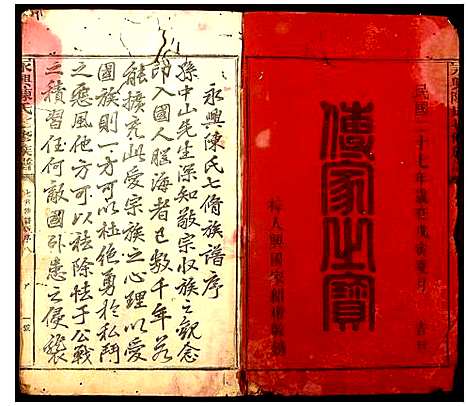 民國二十七年歲在戊寅夏月
傳家之寶
永興陳氏七脩族譜序
孫中山先生深知敬宗收族之觀念
印入國人腦海者已數千年若
能擴充此愛宗族之心理以愛
國族則一方可以杜絕勇於私鬥
之惡風他方可以祛除怯于公戰
之積習任何敵國外患之侵襲
永興陳氏
族譜